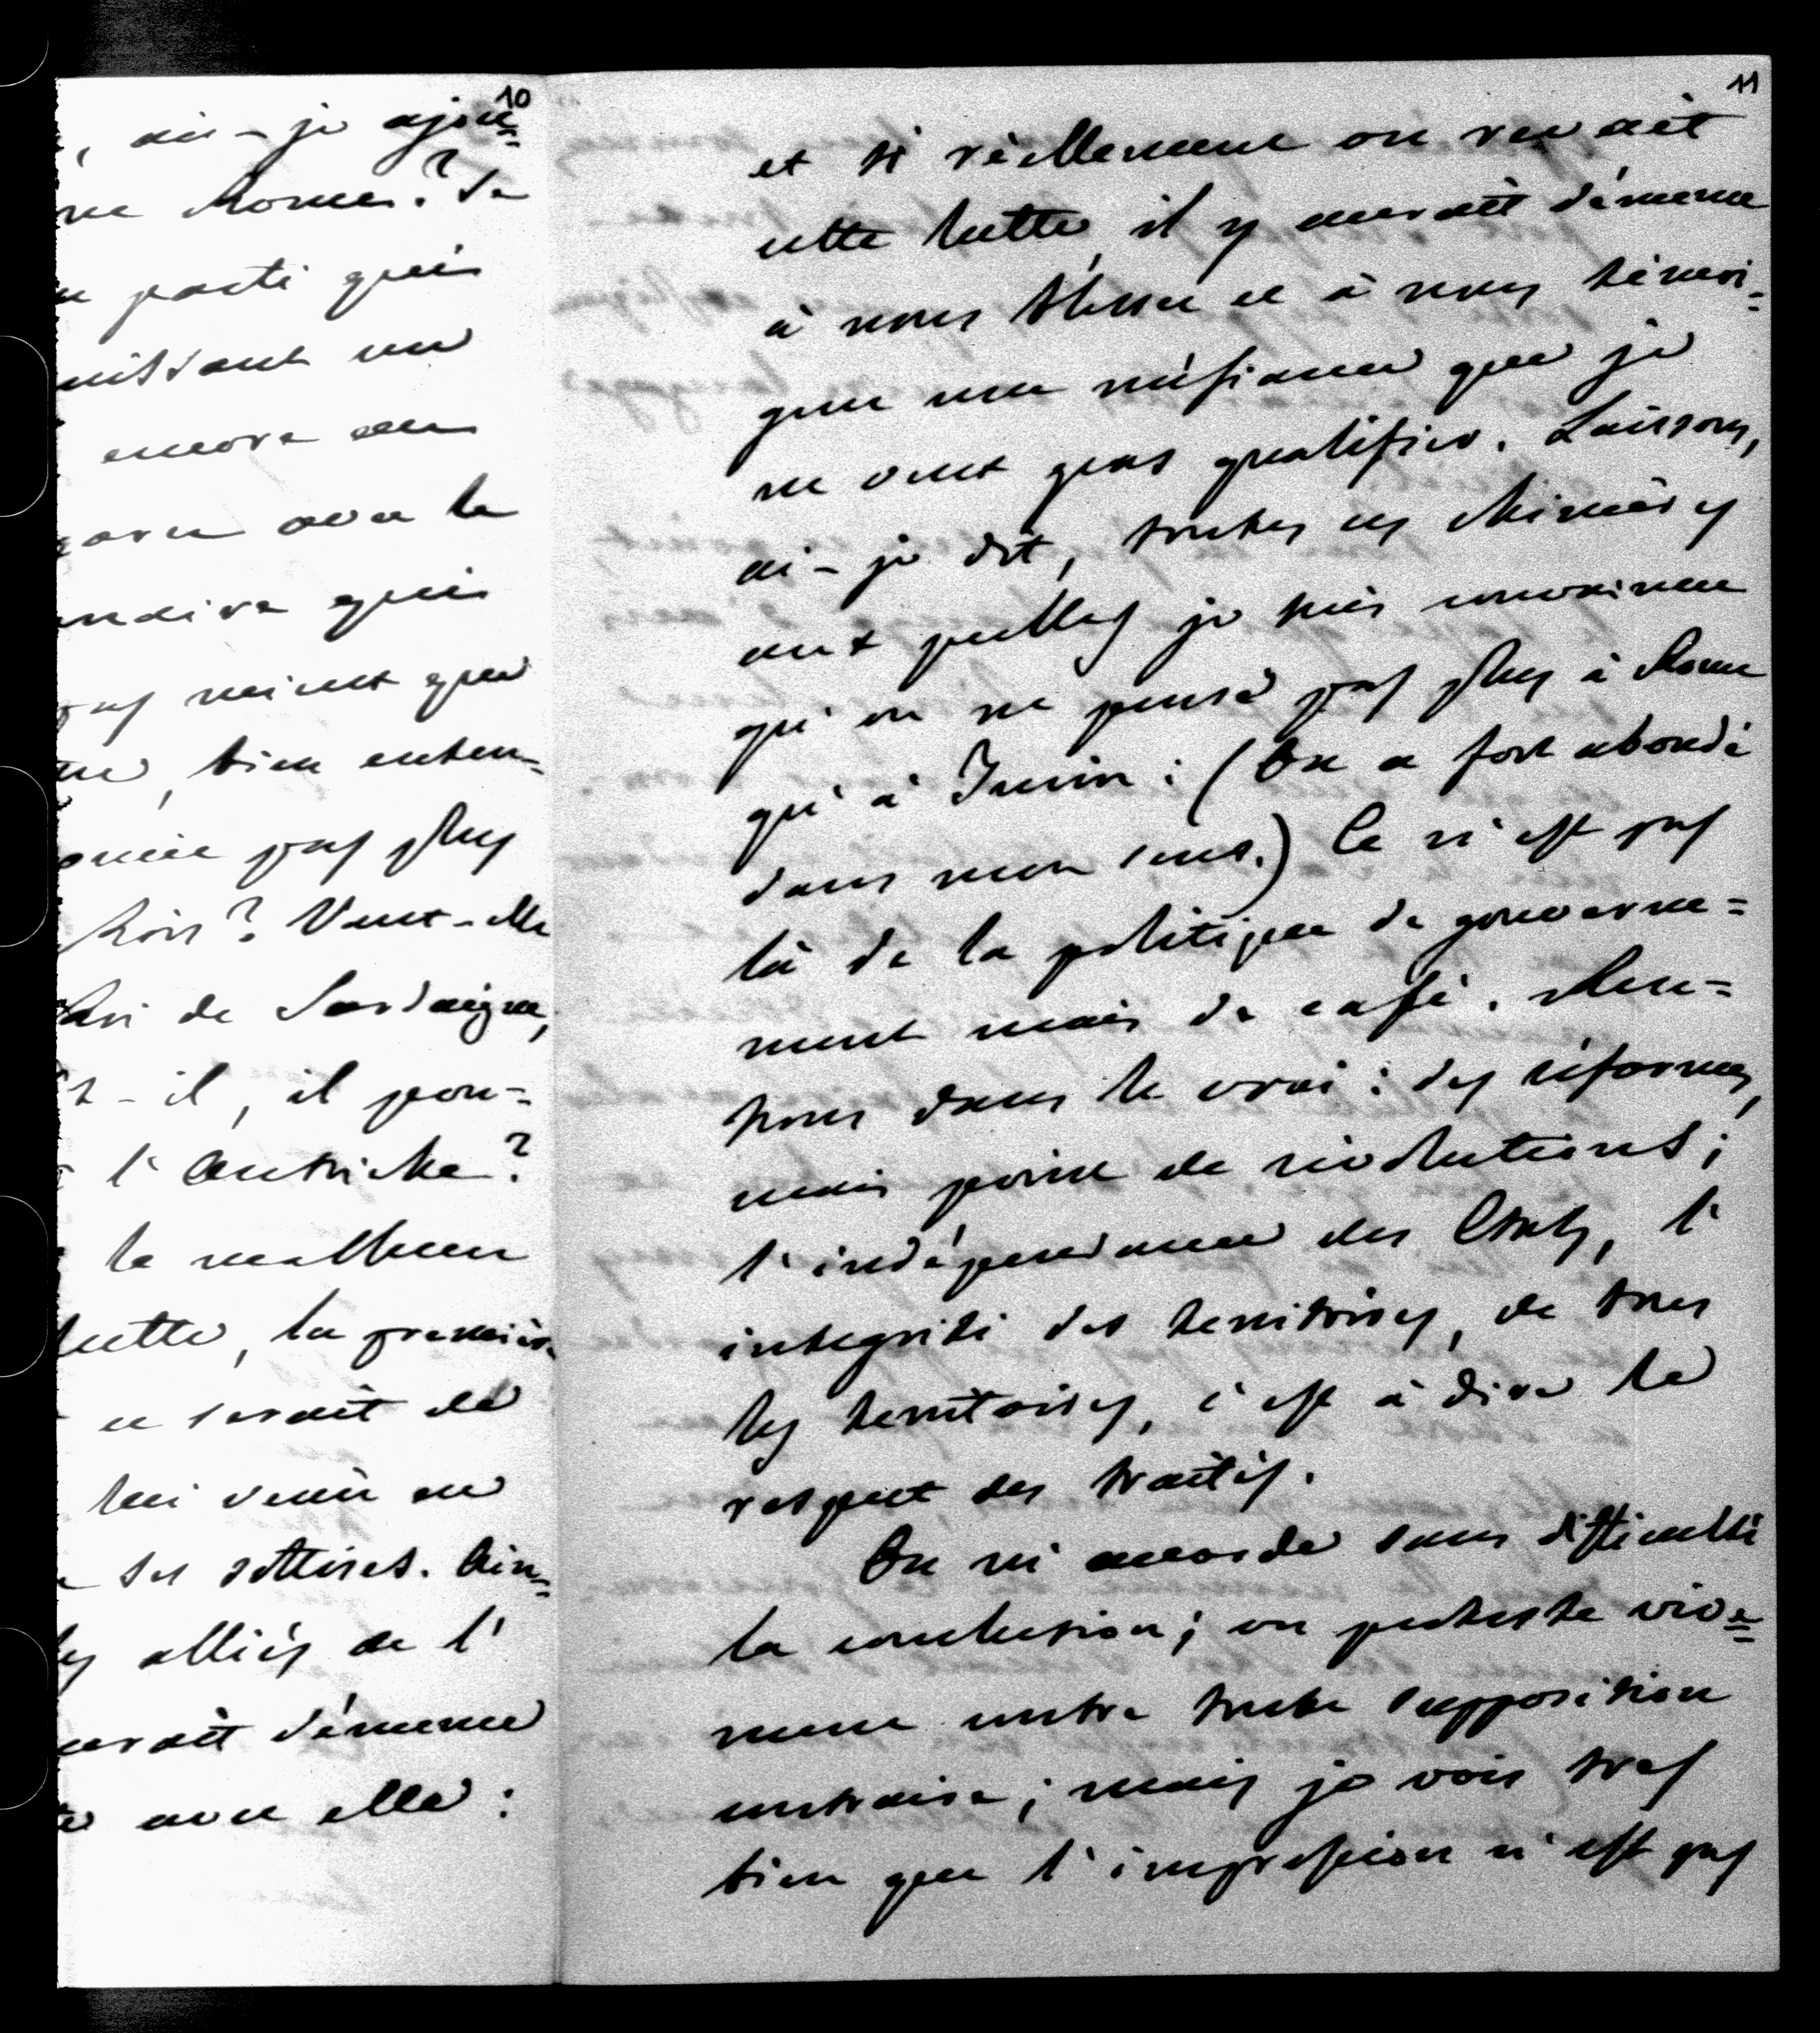 10
, ai-je ajou=
ne Rome? Se
n parti qui
nissant un
encore un
avec la
ndire qui
pas moins que
, bien enten=
pas plus
Rois? Veut-elle
de Sardaigne,
t-il, il pour=
l'Autriche?
le malheur
lutte, la première
ce serait de
lui venir en
ses sottises. Ain=
les alliés de l'
erait démence
avec elle:
11
et si réellement on rêvait
cette lutte, il y aurait démence
à nous blesser et à nous témoi=
gner une méfiance que je
ne veux pas qualifier. Laissons,
ai-je dit, toutes ces chimères
auxquelles je suis convaincu
qu'on ne pense pas plus à Rome
qu'à Turin: (On a fort abondé
dans mon sens.) Ce n'est pas
là de la politique de gouverne=
ment mais de café. Ren=
trons dans le vrai: des réformes,
mais point de révolutions;
l'indépendance des Etats, l'
intégrité des territoires, de tous
les territoires, c'est à dire le
respect des traités.
On m'accorde sans difficulté
la conclusion; on proteste vive=
ment contre toute supposition
contraire; mais je vois très
bien que l'impression n'est pas